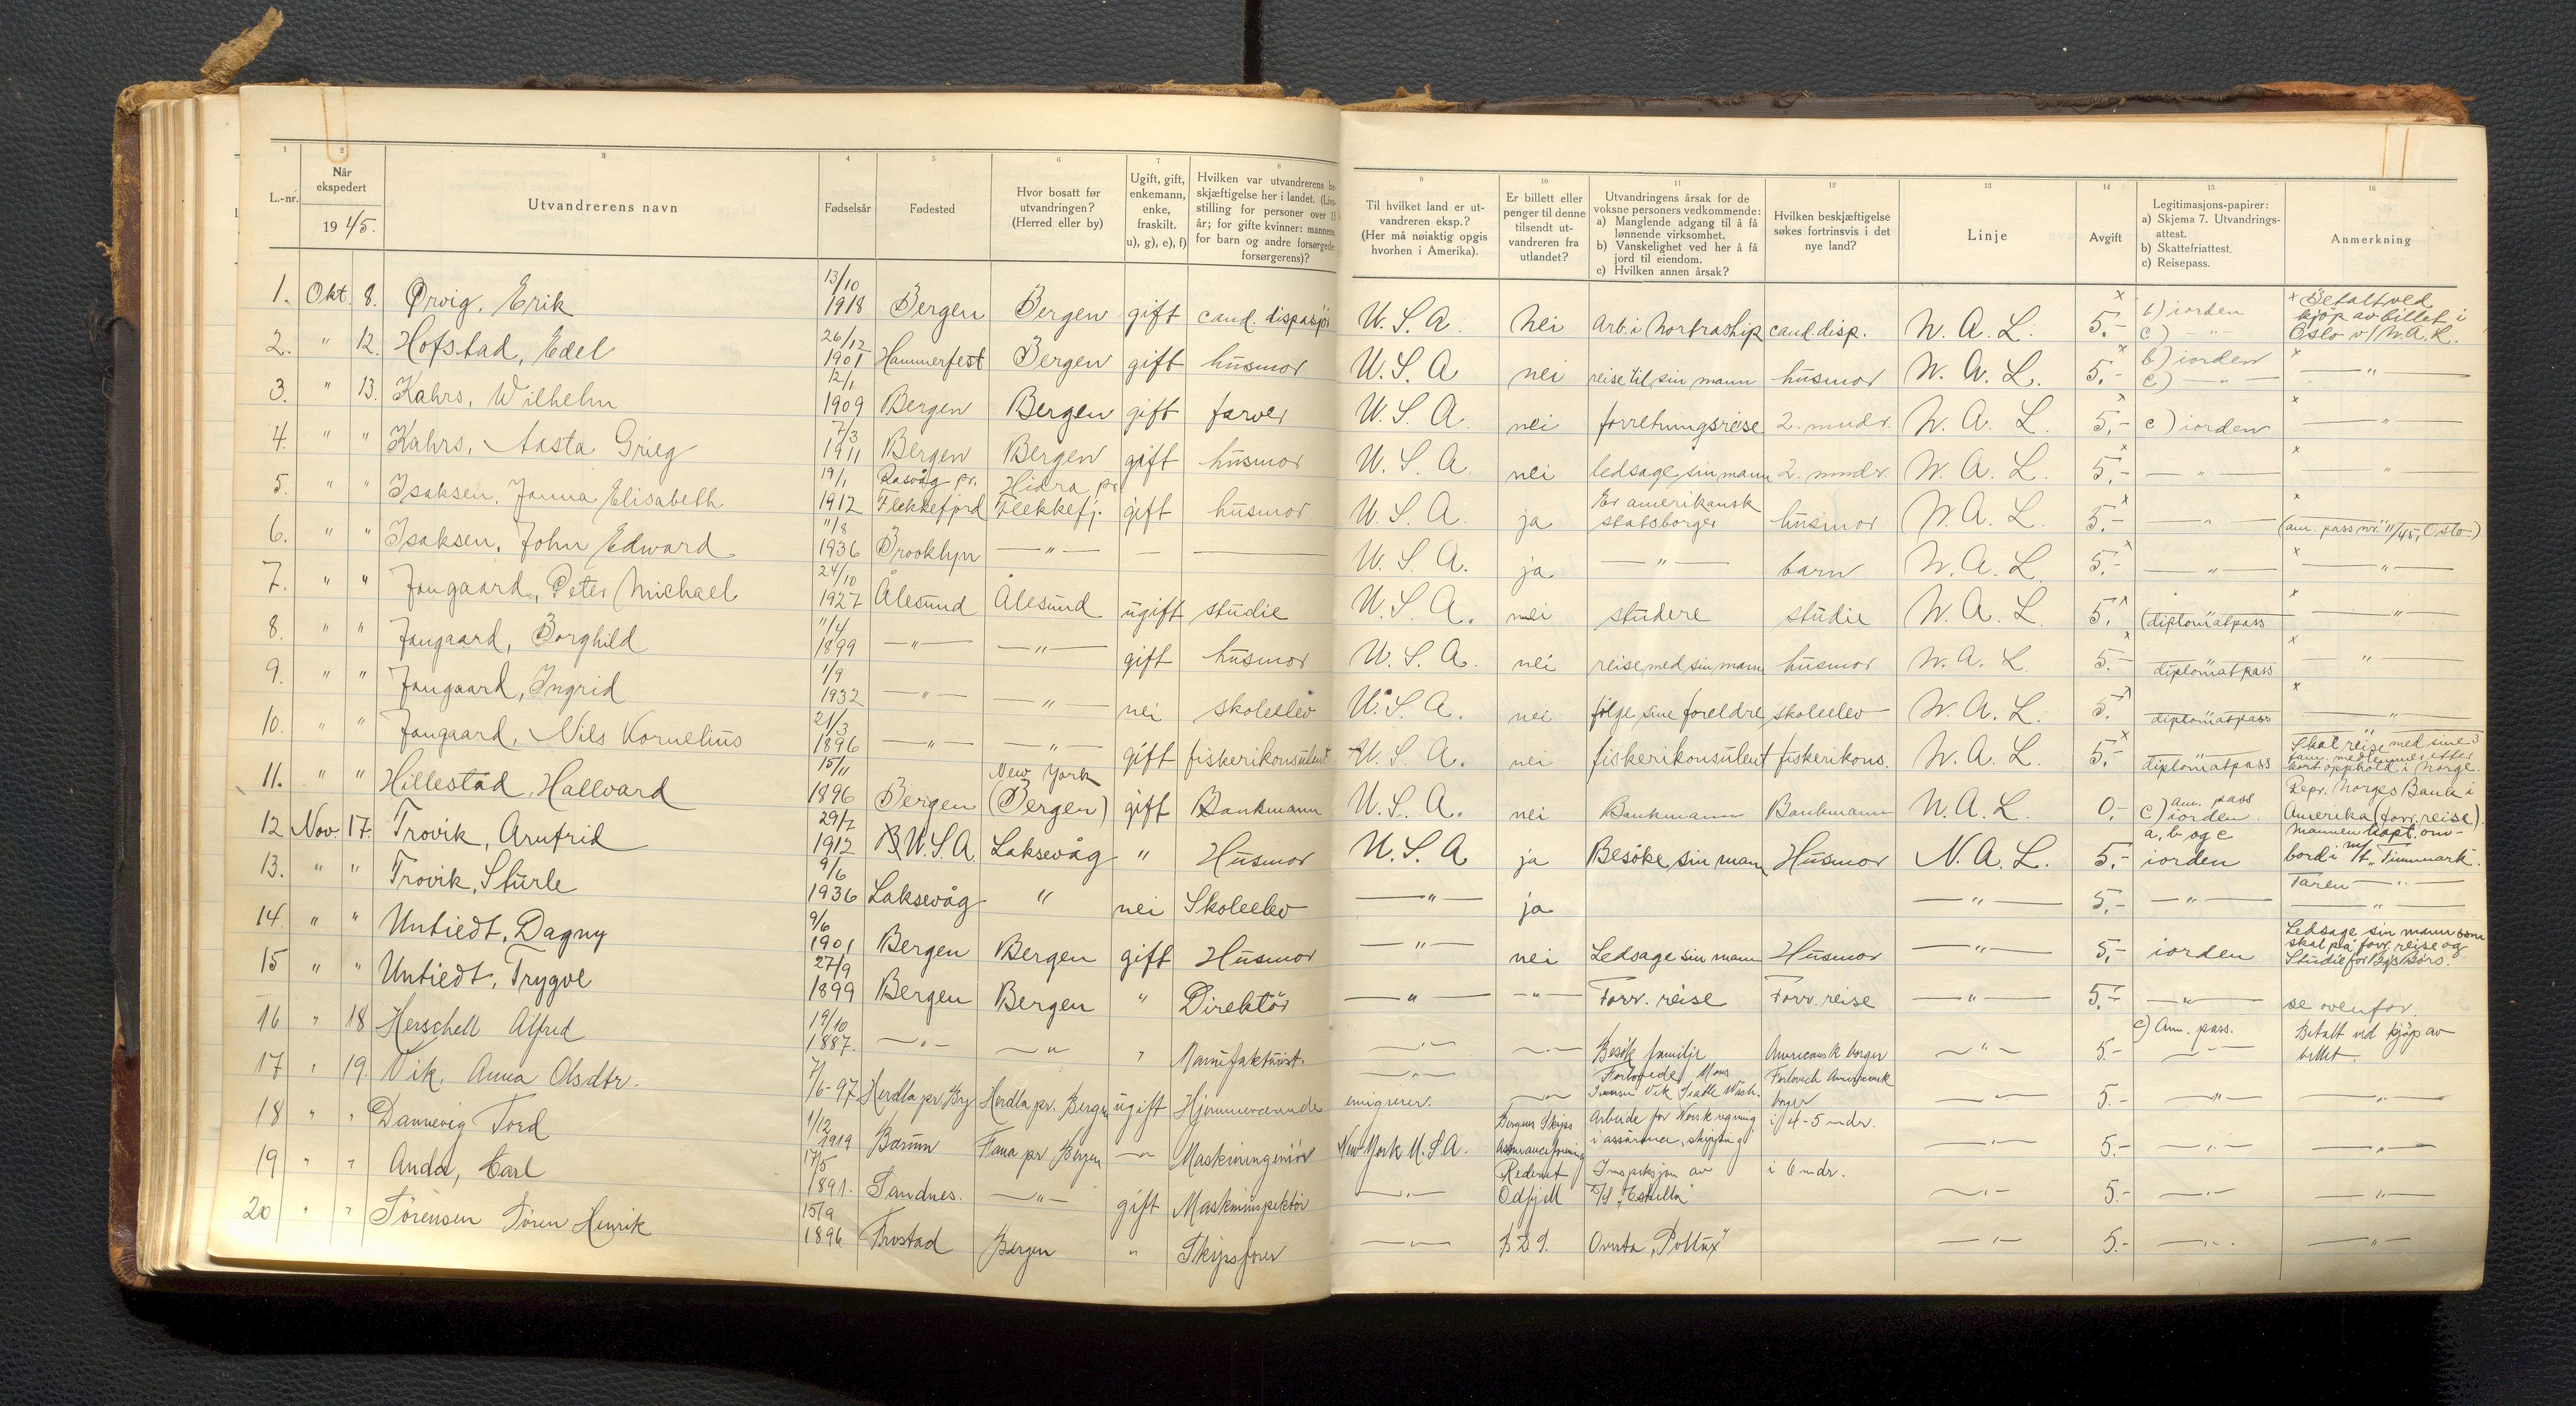 1 2 3 4 5 6 7 8
L.-nr. Når ekspedert 1945. Utvandrerens navn Fødselsår Fødested Hvor bosatt før utvandringen? (Herred eller by) Ugift, gift, enkemann, enke, fraskilt. u), g), e), f) Hvilken var utvandrerens be- skjæftigelse her i landet. (Livs- stilling for personer over 15 år; for gifte kvinner: mannens, for barn og andre forsørgede: forsørgerens)?
9 10 11 12 13 14 15 16
Til hvilket land er ut- vandreren eksp.? (Her må nøiaktig opgis hvorhen i Amerika). Er billett eller penger til denne tilsendt ut- vandreren fra utlandet? Utvandringens årsak for de voksne personers vedkommende: a) Manglende adgang til å få lønnende virksomhet. b) Vanskelighet ved her å få jord til eiendom. c) Hvilken annen årsak? Hvilken beskjæftigelse søkes fortrinsvis i det nye land? Linje Avgift Legitimasjons-papirer: a) Skjema 7. Utvandrings- attest. b) Skattefriattest. c) Reisepass. Anmerkning
1. Okt. 8. Ørvig, Erik 13/10 1918 Bergen Bergen gift cand. dispasjör U.S.A. Nei Arb. i Nortraship cand. disp. N.A.L. 5,- x b) iorden c) —"— x Betalt ved kjöp av billet i Oslo v/ N.A.L.
2. " 12. Hofstad, Edel 26/12 1901 Hammerfest Bergen gift husmor U.S.A nei reise til sin mann husmor N.A.L. 5,- x b) iorden c) —"— x —"—
3. " 13. Kahrs, Wilhelm 12/1 1909 Bergen Bergen gift farver U.S.A. nei forretningsreise 2. mndr. N.A.L. 5,- x c) iorden x —"—
4. " " Kahrs, Aasta Grieg 7/3 1911 Bergen Bergen gift husmor U.S.A. nei ledsage sin mann 2. mndr. N.A.L. 5,- x —"— x "
5. " " Isaksen, Janna Elisabeth 19/1 1912 Rasvåg pr. Flekkefjord Hidra pr. Flekkefj. gift husmor U.S.A. ja Er amerikansk statsborger husmor N.A.L. 5,- x —"— x (am. pass nr. 11/45, Oslo.)
6. " " Isaksen, John Edward 11/8 1936 Brooklyn —"— — — U.S.A. ja —"— barn N.A.L. 5,- x —"— x —"—
7. " " Jangaard, Peter Michael 24/10 1927 Ålesund Ålesund ugift studie U.S.A. nei studere studie N.A.L. 5,- x (diplomatpass x —"—
8. " " Jangaard, Borghild 11/4 1899 —"— —"— gift husmor U.S.A. nei reise med sin mann husmor N.A.L. 5,- x diplomatpass x —"—
9. " " Jangaard, Ingrid 1/9 1932 —"— —"— nei skoleelev U.S.A. nei følge sine foreldre skoleelev N.A.L. 5,- x diplomatpass x —"—
10. " " Jangaard, Nils Kornelius 21/3 1896 —"— —"— gift fiskerikonsulent U.S.A. nei fiskerikonsulent fiskerikons. N.A.L. 5,- x diplomatpass Skal reise med sine 3 fam. medlemmer etter kort opphold i Norge.
11. " " Hillestad, Hallvard 15/11 1896 Bergen New York (Bergen) gift Bankmann U.S.A. nei Bankmann Bankmann N.A.L. 0,- c) am. pass iorden. Repr. Norges Bank i Amerika (forr. reise).
12 Nov. 17. Trovik, Arnfrid 29/7 1912 U.S.A. Laksevåg " Husmor U.S.A ja Besöke sin man Husmor N.A.L. 5,- a, b og c iorden Mannen kapt. om- bord i m/t "Finnmark".
13. " " Trovik, Sturle 9/6 1936 Laksevåg " nei Skoleelev —"— ja —"— 5,- —"— Faren —"—
14. " " Untiedt, Dagny 9/6 1901 Bergen Bergen gift Husmor —"— nei Ledsage sin mann Husmor —"— 5,- iorden Ledsage sin mann som skal på forr. reise og Studie for Bgs Börs.
15 " " Untiedt, Trygve 27/9 1899 Bergen Bergen " Direktör —"— —"— Forr. reise Forr. reise —"— 5,- —"— se ovenfor.
16 " 18 Herschell Alfred 19/10 1887. —"— —"— " Manufakturist. —"— —"— Besök familje Amerikansk borger —"— 5.- c) Am. pass. —"— Betalt ved kjøp av billet.
17 " 19. Vik, Anna Olsdtr. 7/6-97 Herdla pr. Brg Herdla pr. Bergen ugift Hjemmeværende emigrerer. —"— Forlovede Mons Vik Seattle Wash. Forlovet Amerikansk borger —"— 5.- —"— —"—
18 " " Dannevig Tord 1/12 1919 Bærum Fana pr Bergen —"— Maskiningeniör New York U.S.A. Bergens Skips Assuranceforening Arbeide for Norsk regning i assuranse, skipting i 4-5 mdr. —"— 5- —"— —"—
19 " " Anda, Carl 17/5 1891. Sandnes. —"— gift Maskininspektör —"— Rederiet Odfjell Inspeksjon av D/S "Eskilla" i 6 mdr. —"— 5.- —"— —"—
20 " " Sørensen Søren Henrik 15/9 1896 Bergen " Skipsfører —"— B.D.S. Overta "Pollux" —"— 5.- —"— —"—